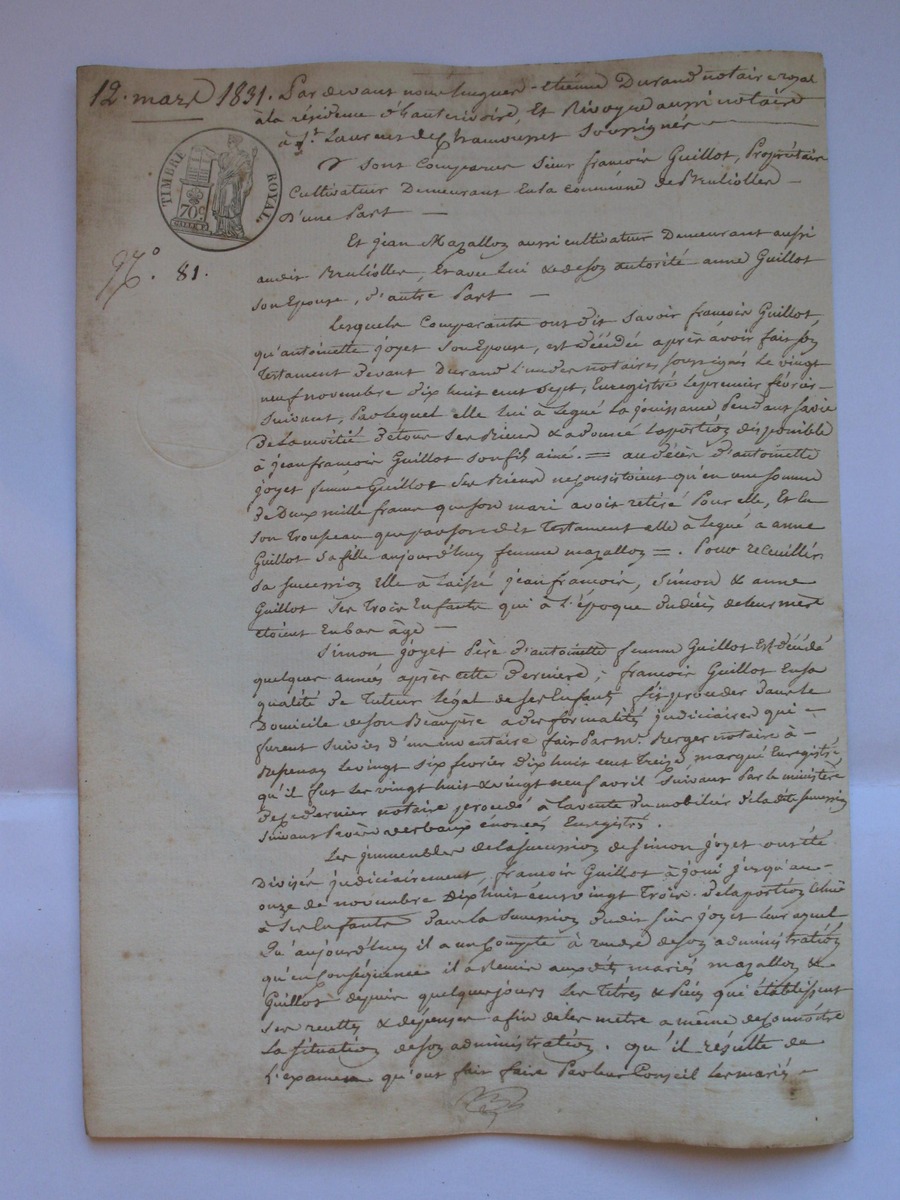 12. mars 1831. Pardevant nous hugues-étienne Durand notaire royal
à la résidence d'hauterivoire, Et Rivoyre aussi notaire
à St. Laurent de Chamousset Soussignés
Sont Comparus Sieur françois Guillot, Propriétaire
Cultivateur Demeurant En la commune de Brullioles
D'une Part
Et jean Mazallon aussi cultivateur Demeurant aussi
audit Brullioles, Et avec lui & de son autorité anne Guillot
son Epouse, d'autre Part
Lesquels Comparants ont dit Savoir françois Guillot
qu'antoinette joyet son Epouse, est décédée après avoir fait son
Testament devant Durand l'un des notaires soussignés Le vingt
neuf novembre dix huit cent Sept, Enregistré le premier février
Suivant, Par lequel elle lui à Légué La jouissance Pendant sa vie
De La moitié de tous Ses Biens & a donné la portion disponible
à jean françois Guillot son fils ainé. = au décès d'antoinette
joyet femme Guillot Ses Biens ne consistoient qu'en une somme
de Deux mille francs que son mari avoit retiré Pour elle, Et En
son Trousseau que par son dit Testament elle à Légué à anne
Guillot sa fille aujourd'huy femme mazallon =. Pour recueillir
sa succession Elle à laissé jean françois, Simon & anne
Guillot Ses Trois Enfants qui à L'époque du décès de leur mère
étoient En bas âge
Simon joyet Père d'antoinette femme Guillot Est décédé
quelques années après cette Dernière; françois Guillot En sa
qualité de Tuteur légal de ses Enfants fit procéder dans le
Domicile de son Beaupère a des formalités judiciaires qui
furent Suivies d'un inventaire fait Par me. Berger notaire à
Bessenay le vingt six février dix huit cent Treize, marqué Enregistré
qu'il fut Les vingt huit & vingt neuf avril Suivant Par le ministère
de ce dernier notaire procédé à la vente du mobilier de la dite succession
suivant Procès verbaux énoncés Enregistrés.
Les immeubles de la succession de Simon joyet ont été
Divisés judiciairement, françois Guillot à joui jusqu'au
onze de novembre Dix huit cent vingt Trois de la portion échue
à Ses Enfants dans la Succession dudit Sieur joyet leur ayeul
Qu'aujourd'huy il a un Compte à rendre de son administration
qu'en conséquence il a remis aux dits mariés mazallon &
Guillot depuis quelques jours Les Titres & Pièces qui établissent
Ses recettes & dépenses afin de les mettre a même de connoître
La situation de son administration. qu'il résulte de
L'examen qu'ont fait faire Par leur Conseil Les mariés
TIMBRE ROYAL
70 c
No. 81.